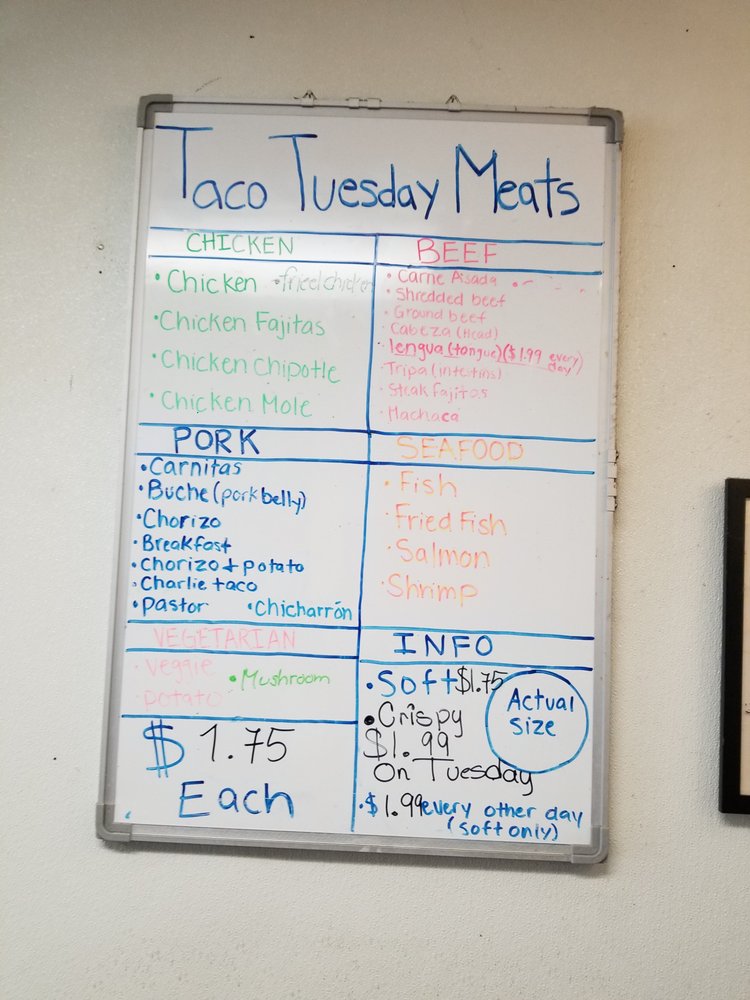 Taco Tuesday Meats
CHICKEN
• Chicken • fried chicken
• Chicken Fajitas
• Chicken Chipotle
• Chicken Mole
BEEF
• Carne Asada
• Shredded beef
• Ground beef
• Cabeza (Head)
• lengua (tongue) ($1.99 every day)
• Tripa (intestins)
• Steak Fajitas
• Machaca
PORK
• Carnitas
• Buche (pork belly)
• Chorizo
• Breakfast
• Chorizo + potato
• Charlie taco
• pastor • Chicharrón
SEAFOOD
• Fish
• Fried Fish
• Salmon
• Shrimp
VEGETARIAN
• Veggie • Mushroom
• potato
$ 1.75
Each
INFO
• Soft $1.75
• Crispy
$1.99
On Tuesday
Actual
Size
• $1.99 every other day
(soft only)